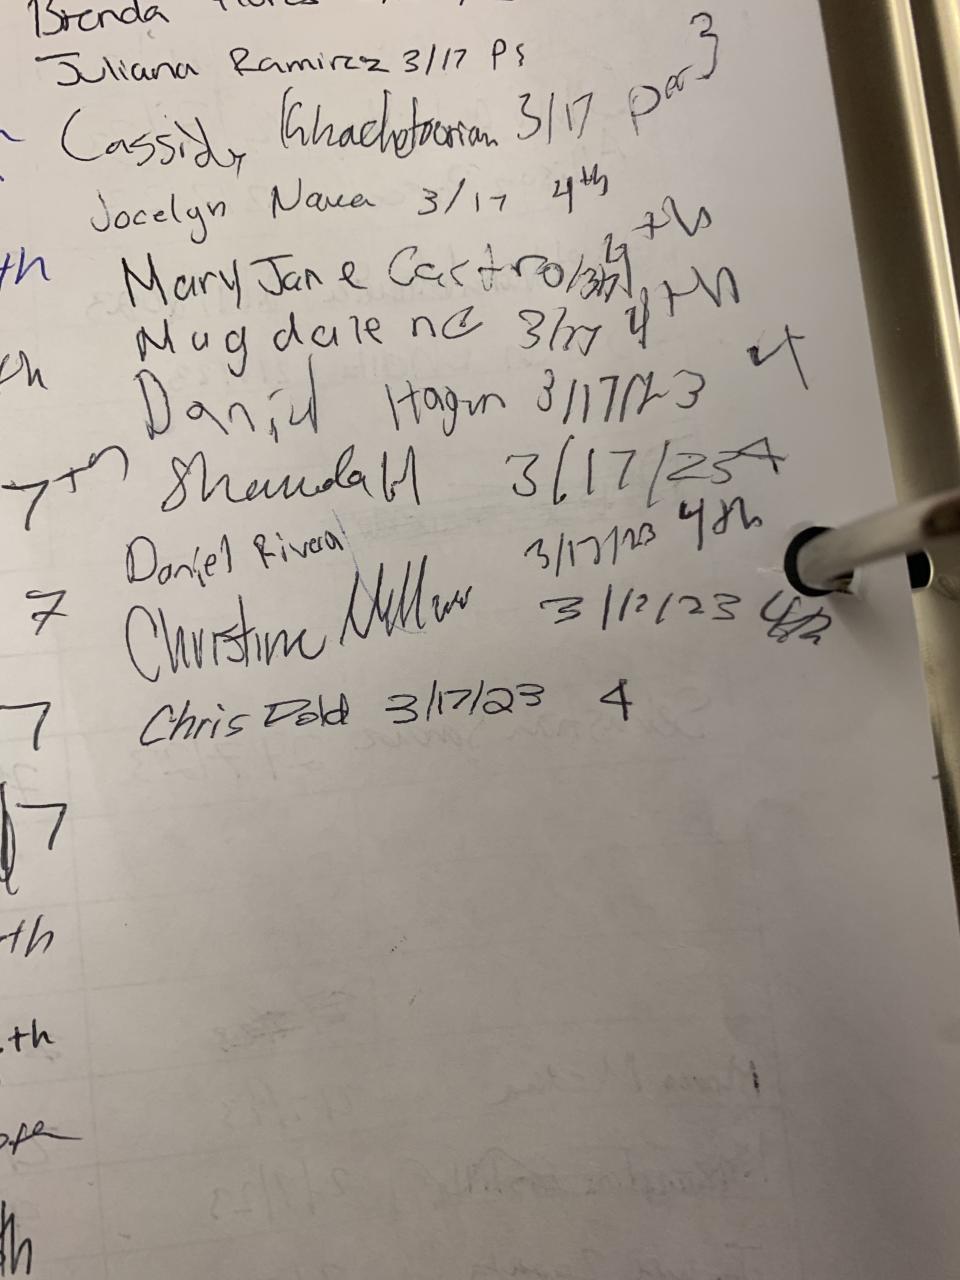 Brenda
Juliana Ramirez 3/17 P5
Cassidy Khachatourian 3/17 per 3
Jocelyn Nava 3/17 4th
th Mary Jane Castro 3/17 4th
Magdalene 3/17 4th
Daniel Hagen 3/17/23 4
7th Shaunda H 3/17/23 4
Daniel Rivera 3/17/23 4th
7 Christine 3/17/23 4th
7 Chris Dold 3/17/23 4
7
th
th
th